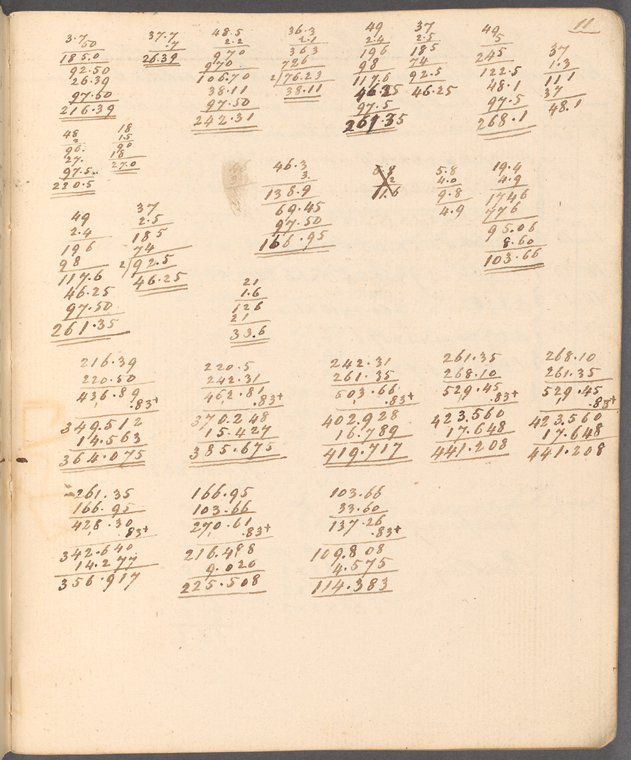 11
3.7
50
185.0
92.50
26.39
97.60
216.39
37.7
.7
26.39
48.5
2.2
970
970
106.70
38.11
97.50
242.31
36.3
2.1
363
726
2/76.23
38.11
49
2.4
196
98
117.6
46.25
97.5
261.35
37
2.5
185
74
92.5
46.25
49
5
245
122.5
48.1
97.5
268.1
37
1.3
111
37
48.1
48
2
96.
27.
97.5
220.5
18
1.5
90
18
27.0
46.3
3.
138.9
69.45
97.50
166.95
5.8
2
11.6
5.8
4.0
9.8
4.9
19.4
4.9
1746
776
95.06
8.60
103.66
49
2.4
196
98
117.6
46.25
97.50
261.35
37
2.5
185
74
2/92.5
46.25
21
1.6
126
21
33.6
216.39
220.50
436.89
.83+
349.512
14.563
364.075
220.5
242.31
462.81
.83+
370.248
15.427
385.675
242.31
261.35
503.66
.83+
402.928
16.789
419.717
261.35
268.10
529.45
.83+
423.560
17.648
441.208
268.10
261.35
529.45
.83+
423.560
17.648
441.208
261.35
166.95
428.30
.83+
342.640
14.277
356.917
166.95
103.66
270.61
.83+
216.488
9.020
225.508
103.66
33.60
137.26
.83+
109.808
4.575
114.383